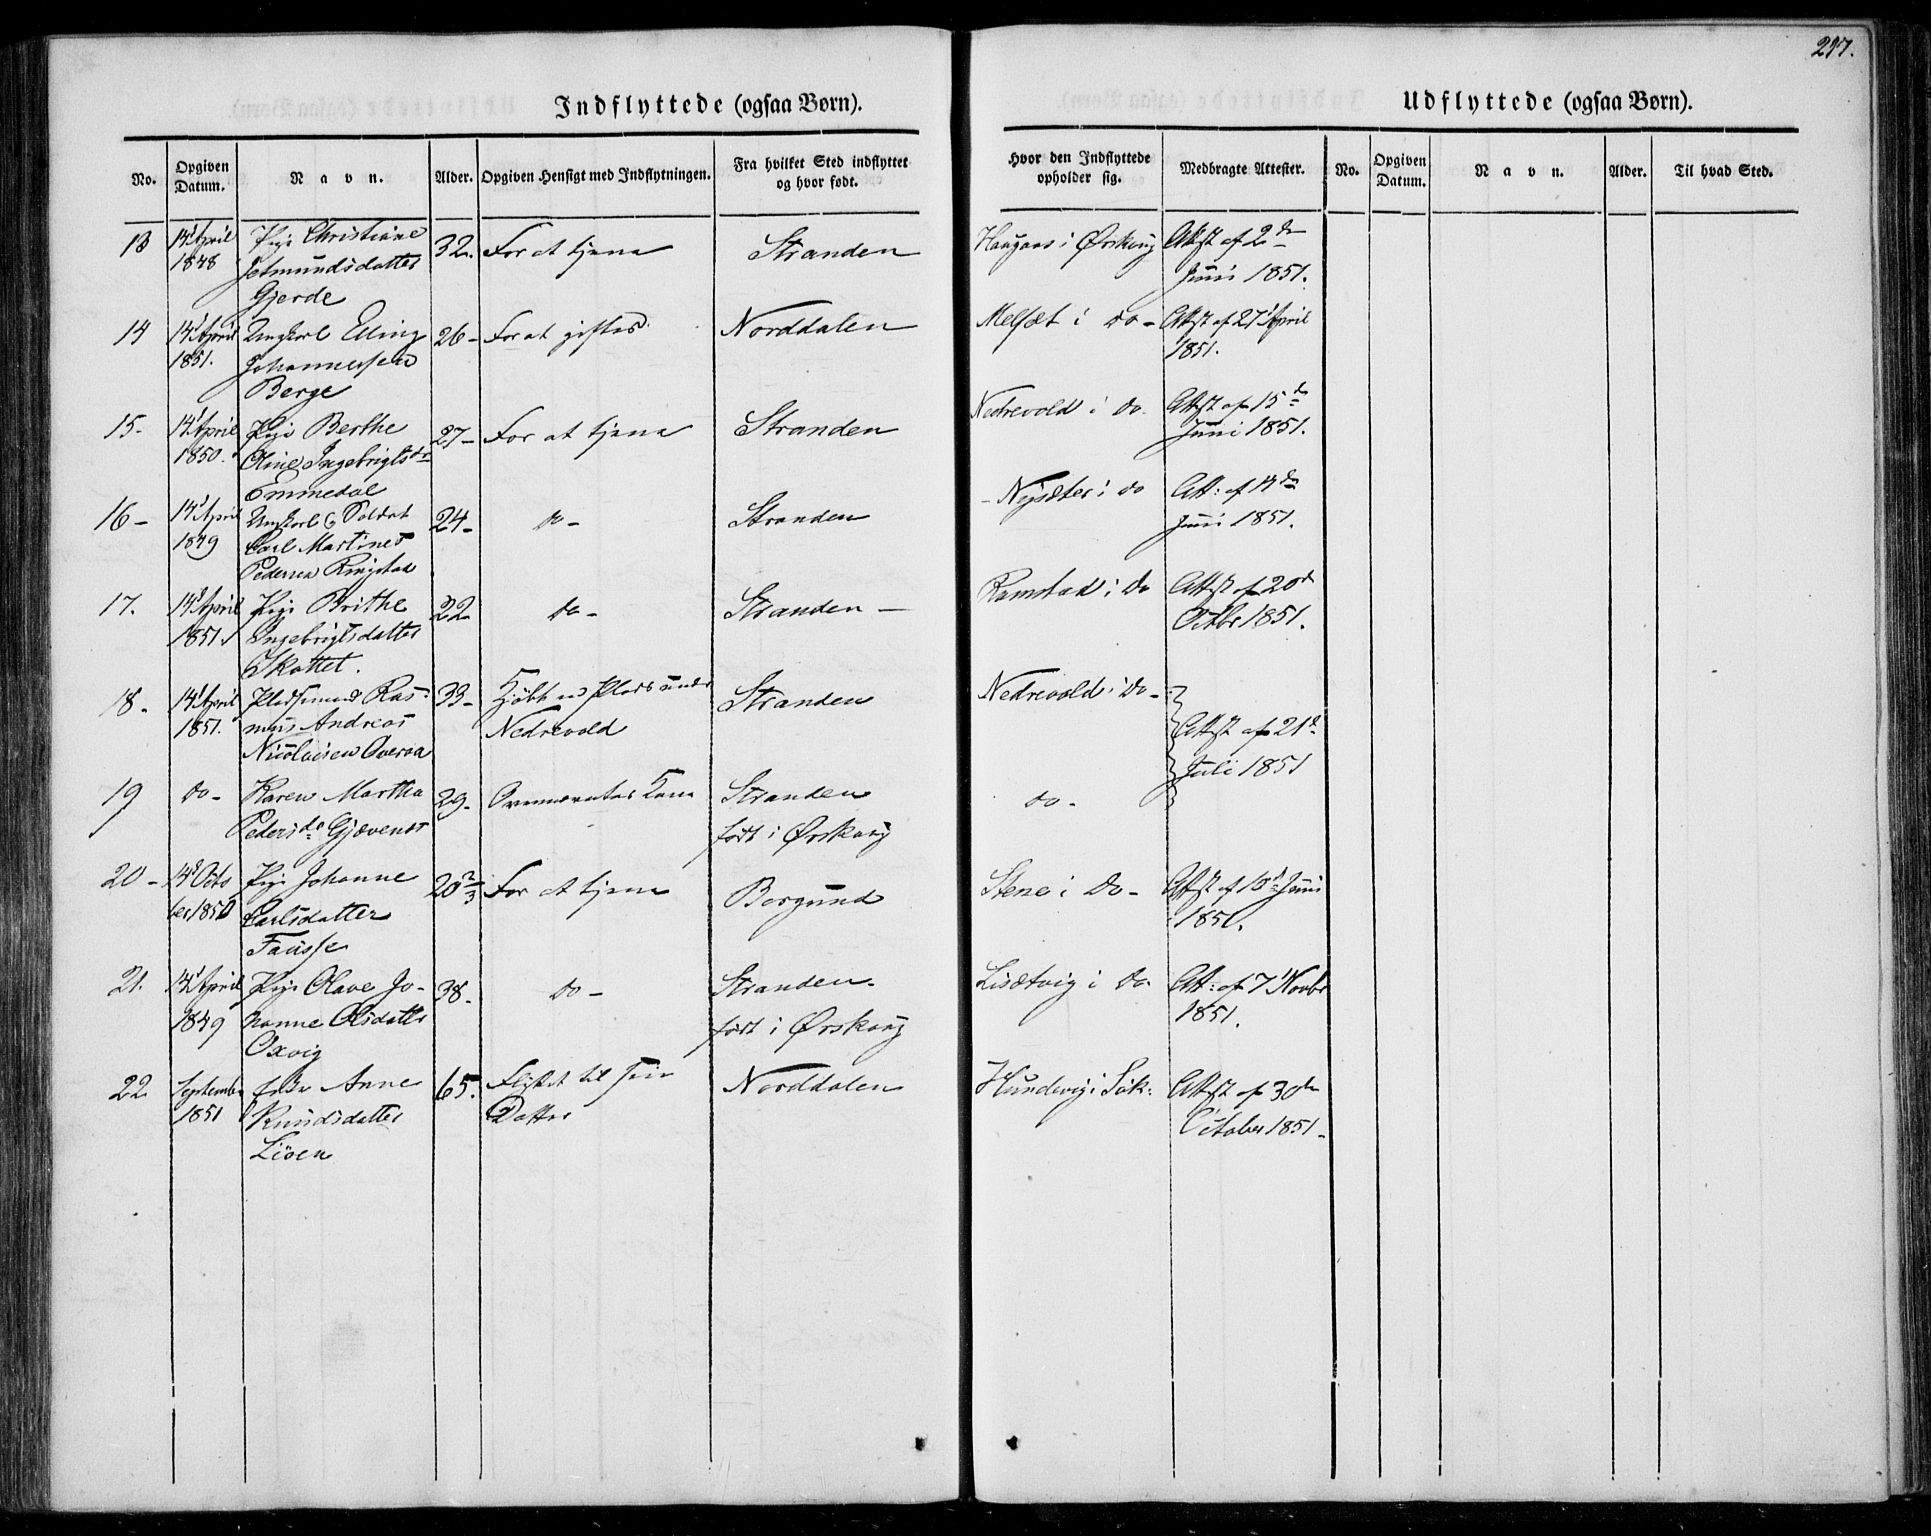 217.
Indflyttede (ogsaa Børn).
Udflyttede (ogsaa Børn).
No. Opgiven Datum. Navn. Alder. Opgiven Hensigt med Indflytningen. Fra hvilket Sted indflyttet og hvor født. Hvor den Indflyttede opholder sig. Medbragte Attester. No. Opgiven Datum. Navn. Alder. Til hvad Sted.
13 14 April Pige Christiane 32. For at tjene Stranden Haugaas i Ørskoug Attst af 2den
1848 Jetmundsdatter Juni 1851.
Gjerde
14 14 April Ungkarl Elling 26- For at giftes. Norddalen Melsæt i do- Attst af 27 April
1851. Johannessen 1851.
Berge
15- 14 April Pige Berthe 27- For at tjene Stranden Nedrevold i do. Attst af 15de
1850. Oline Ingebrigtsdr Juni 1851.
Emmedal
16- 14 April Ungkarl & Soldat 24- do- Stranden Nysæter i do Att: af 14de
1849 Carl Martinus Juni 1851.
Pedersen Ringstad
17. 14 April Pige Brithe 22 do- Stranden- Ramstad i do Attst af 20d
1851. Ingebrigtsdatter Octbr 1851.
Skottet.
18- 14 April Pladsmand Ras- 33- Kjøbt en Plads under Stranden Nedrevold i do-
1851. mus Andreas Nedrevold Attst af 21d
Nicolaisen Overaa Juli 1851
19 do- Karen Martha 29- Ovennævntes Kone Stranden do-
Pedersdr født i Ørskoug
20- 14 Octo Pige Johanne 20 2/3 For at tjene Borgund Stene i do- Attst af 10 Juni
ber 1850 Carlsdatter 1851.
Fausse
21. 14 April Pige Olave Jo- 38- do- Stranden. Lisætvig i do- Att: af 7 Novbr
1849 hanne Olsdatter født i Ørskoug 1851.
Oxvig
22 September Anne 65. Flyttet til sin Norddalen Hundevig i Søk: Attst af 30de
1851 Knudsdatter Datter October 1851-
Liøen